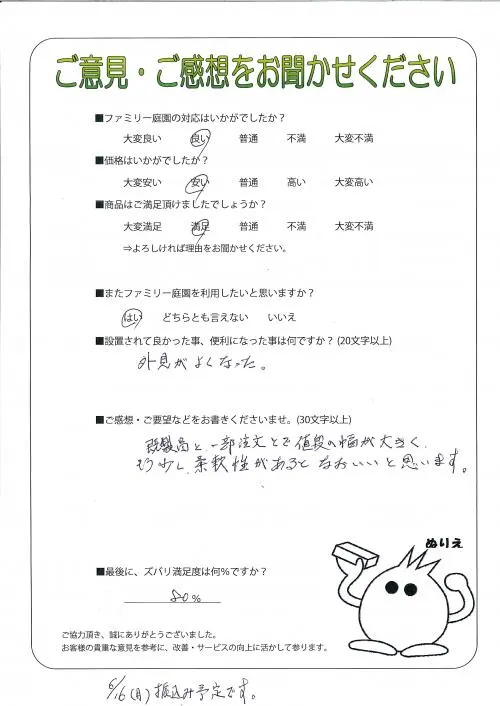 ご意見・ご感想をお聞かせください
■ファミリー庭園の対応はいかがでしたか？
大変良い 良い 普通 不満 大変不満
■価格はいかがでしたか？
大変安い 安い 普通 高い 大変高い
■商品はご満足頂けましたでしょうか？
大変満足 満足 普通 不満 大変不満
⇒よろしければ理由をお聞かせください。
■またファミリー庭園を利用したいと思いますか？
はい どちらとも言えない いいえ
■設置されて良かった事、便利になった事は何ですか？(20文字以上)
外見がよくなった。
■ご感想・ご要望などをお書きくださいませ。(30文字以上)
既製品と一部注文とで値段の幅が大きく、
もう少し、柔軟性があるとなおいいと思います。
ぬりえ
■最後に、ズバリ満足度は何%ですか？
80%
ご協力頂き、誠にありがとうございました。
お客様の貴重な意見を参考に、改善・サービスの向上に活かして参ります。
6/16(月)振込み予定です。